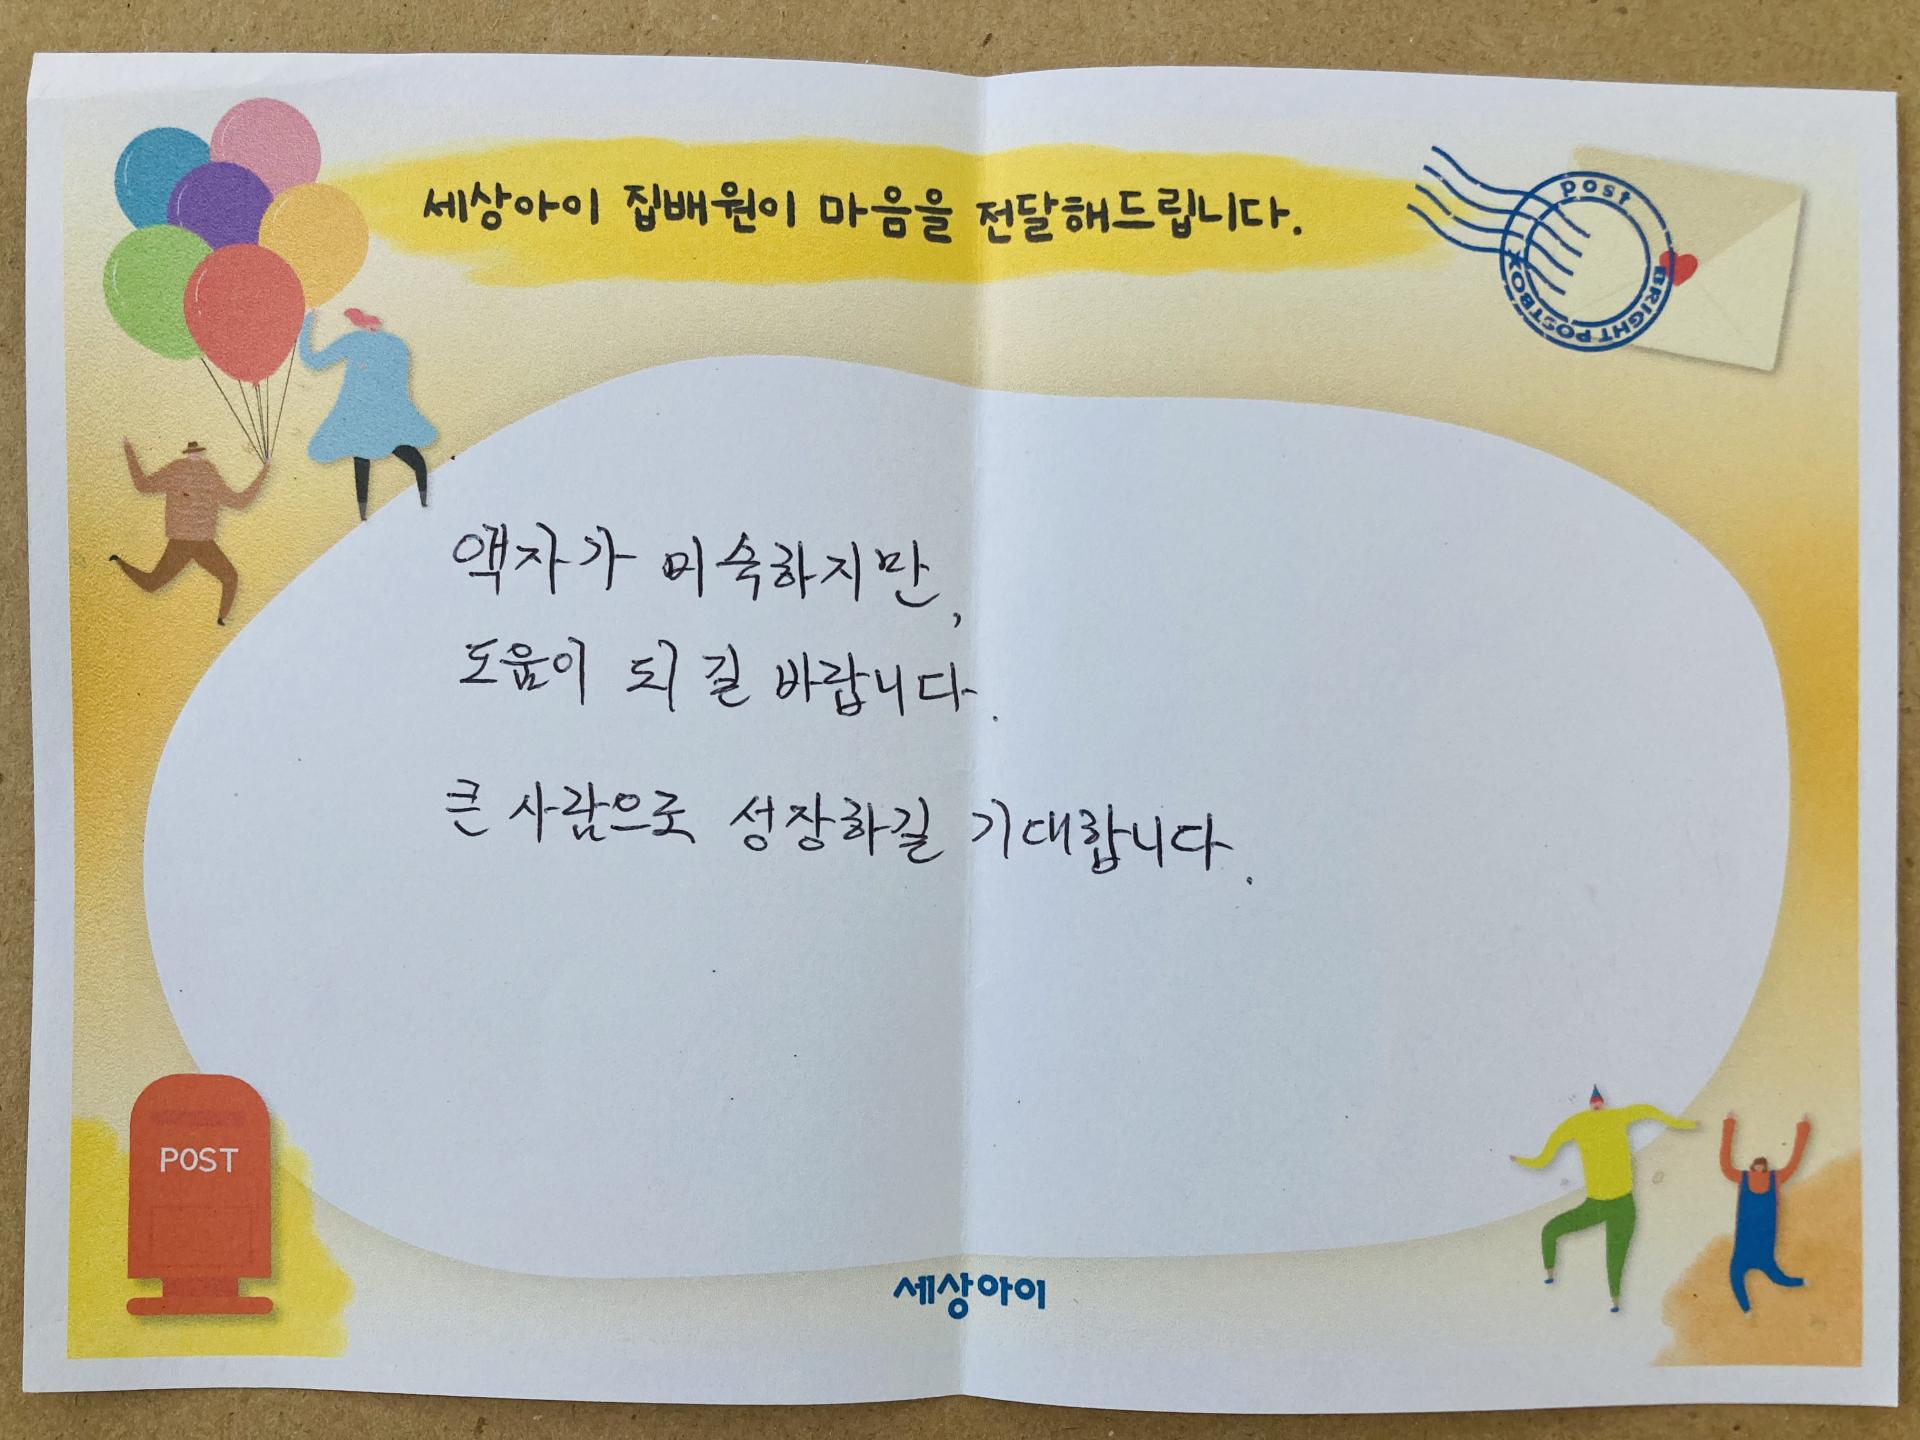 세상아이 집배원이 마음을 전달해드립니다.
post
BRIGHT POSTBOX
액자가 미숙하지만,
도움이 되길 바랍니다.
큰 사람으로 성장하길 기대합니다.
POST
세상아이